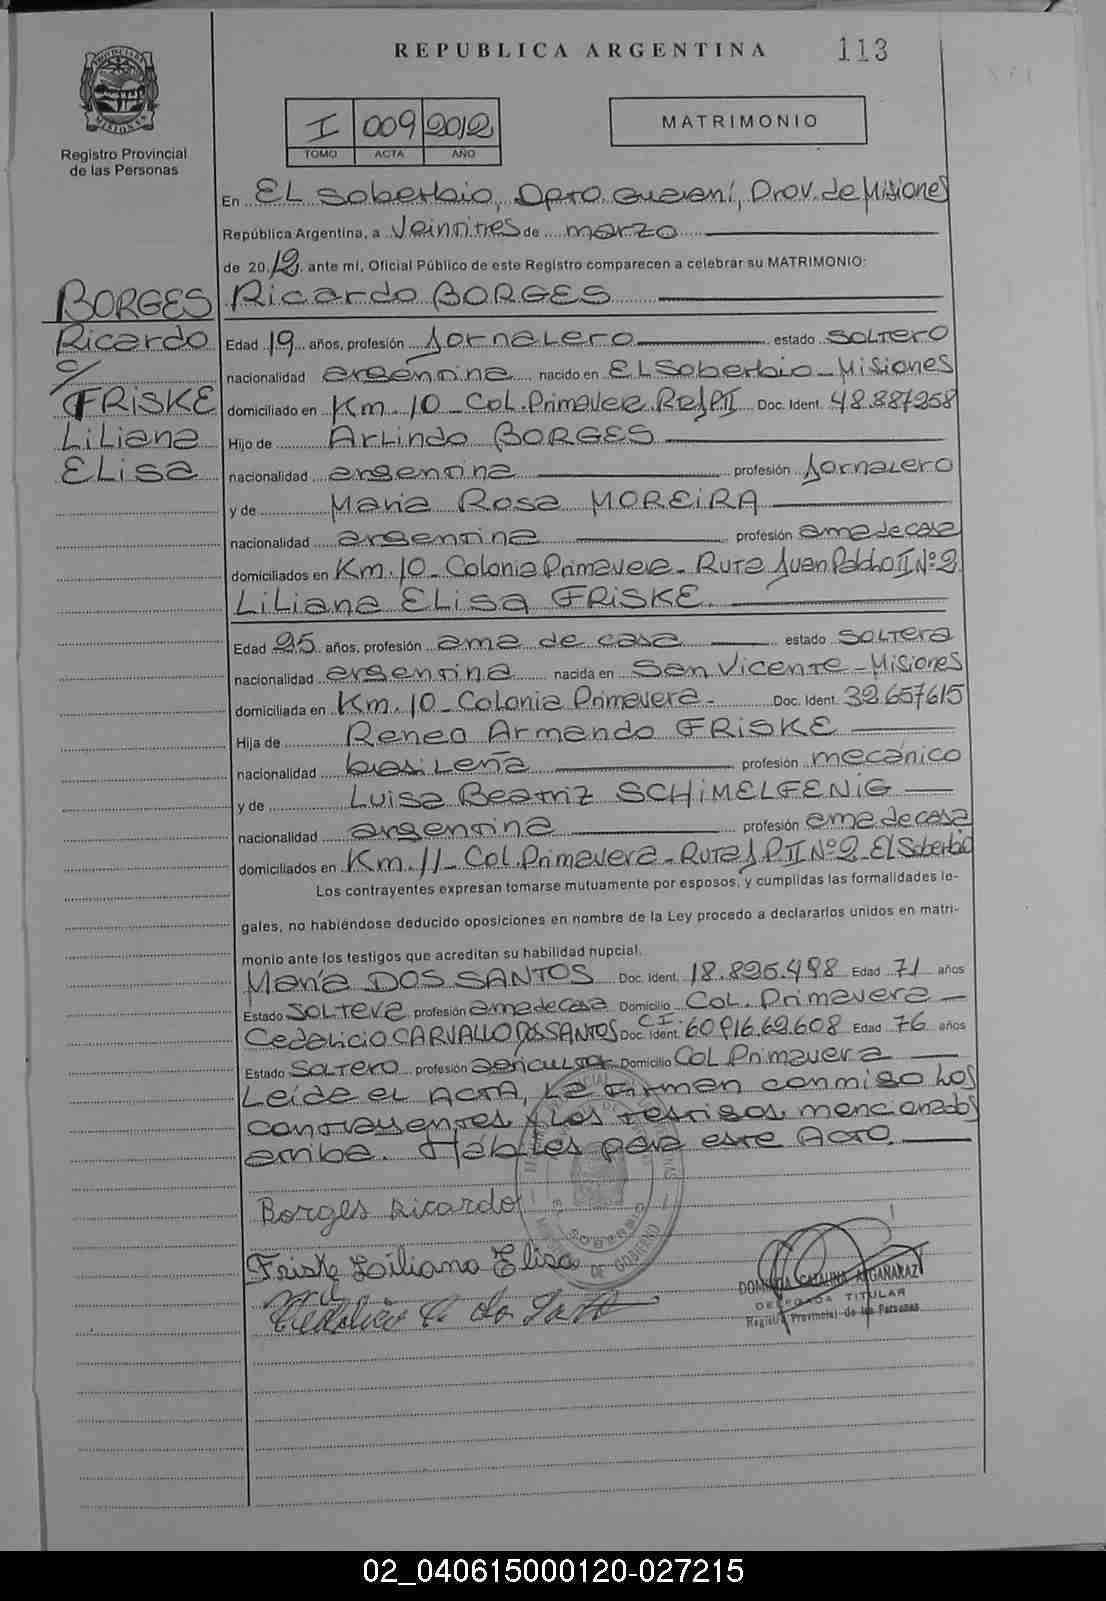 REPUBLICA ARGENTINA 113
PROVINCIA DE MISIONES
Registro Provincial
de las Personas
I 009 2012
TOMO ACTA AÑO
MATRIMONIO
En EL Soberbio, Dpto. Guaraní, Prov. de Misiones
República Argentina, a Veintitres de marzo
de 2012 ante mí, Oficial Público de este Registro comparecen a celebrar su MATRIMONIO:
BORGES
Ricardo
c/
FRISKE
Liliana
ELisa
Ricardo BORGES
Edad 19 años, profesión Jornalero estado SOLTERO
nacionalidad argentina nacido en EL Soberbio - Misiones
domiciliado en Km. 10 - Col. Primavera R2JPII Doc. Ident. 48.887258
Hijo de Arlindo BORGES
nacionalidad argentina profesión Jornalero
y de Maria Rosa MOREIRA
nacionalidad argentina profesión ama de casa
domiciliados en Km. 10 - Colonia Primavera - Ruta Juan Pablo II Nº 2
Liliana ELisa FRISKE.
Edad 25 años, profesión ama de casa estado SOLTERA
nacionalidad argentina nacida en San Vicente - Misiones
domiciliada en Km. 10 - Colonia Primavera - Doc. Ident. 32.657615
Hija de Reneo Armando FRISKE
nacionalidad brasileña profesión mecánico
y de Luisa Beatriz SCHIMELFENIG
nacionalidad argentina profesión ama de casa
domiciliados en Km. 11 - Col. Primavera - Ruta J P II Nº 2 El Soberbio
Los contrayentes expresan tomarse mutuamente por esposos, y cumplidas las formalidades le-
gales, no habiéndose deducido oposiciones en nombre de la Ley procedo a declararlos unidos en matri-
monio ante los testigos que acreditan su habilidad nupcial.
María DOS SANTOS Doc. Ident. 18.825.498 Edad 71 años
Estado SOLTERA profesión ama de casa Domicilio Col. Primavera
Cedelicio CARVALLO DOS SANTOS Doc. C.I. Ident. 60916.69.608 Edad 76 años
Estado SOLTERO profesión agricultor Domicilio Col Primavera
Leida el ACTA, La firman conmigo Los
contrayentes y Los testigos mencionados
arriba. Hábiles para este Acto.
Borges Ricardo
Friske Liliana Elisa
DOMINGA CATALINA ARGAÑARAZ
DELEGADA TITULAR
Registro Provincial de las Personas
02_040615000120-027215